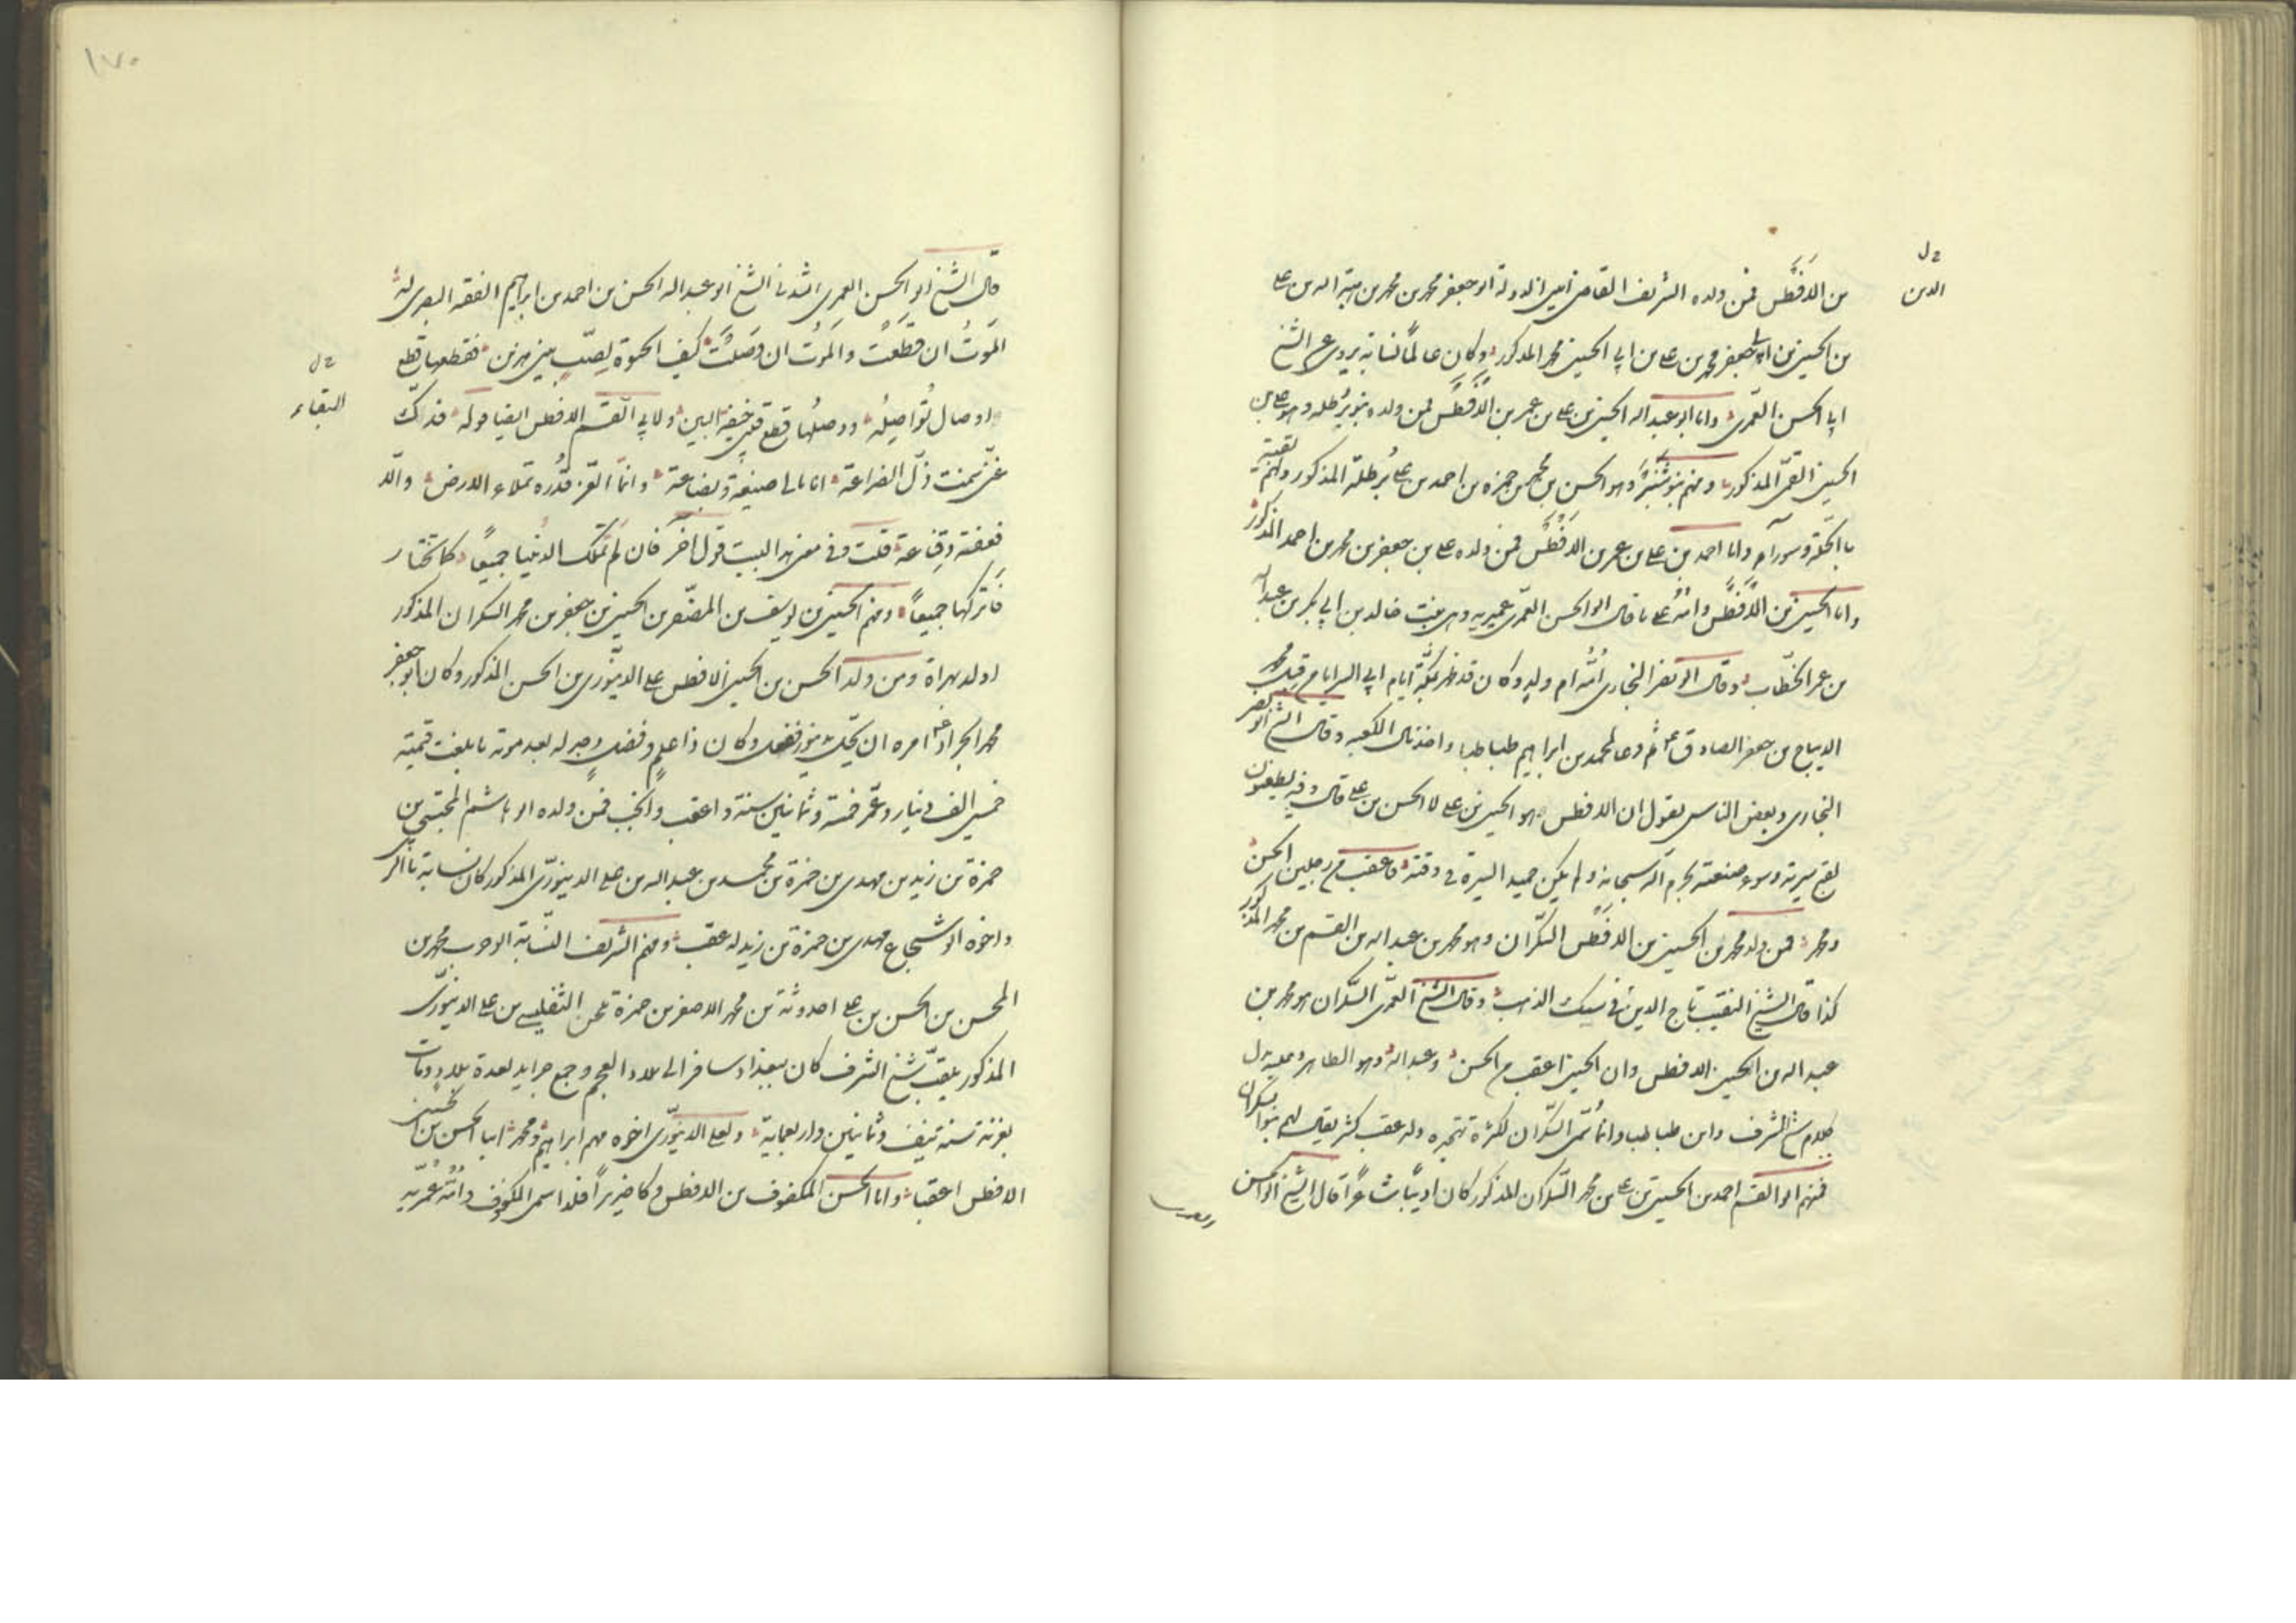 من الافطس فمن ولده الشريف القاضي امين الدولة ابو جعفر محمد بن محمد بن هبة الله بن علي
الدين
بن الحسين بن ابي جعفر محمد بن علي بن ابي الحسين محمد المذكور وكان عالما نسابة يروي عن الشيخ
ابي الحسن العمري واما ابو عبد الله الحسين بن علي بن عمر بن الافطس فمن ولده بنو برطله وهو علي بن
الحسين القمي المذكور ومنهم بنو شنبر وهو الحسن بن محمد بن حمزه بن احمد بن علي برطلة المذكور ولهم بقية
بالحلة وسورآء واما احمد بن علي بن عمر بن الافطس فمن ولده علي بن جعفر بن محمد بن احمد المذكور
واما الحسين بن الافطس وامه على ما قال ابو الحسن العمري عمريه وهي بنت خالد بن ابي بكر بن عبد الله
بن عمر الخطاب وقال ابو نصر البخاري امه ام ولد وكان قد ظهر بمكة ايام ابي السرايا من قبل محمد
الديباج بن جعفر الصادق ثم دعا لمحمد بن ابراهيم طباطبا واخذ مال الكعبه وقال الشيخ ابو نصر
البخاري وبعض الناس يقول ان الافطس هو الحسين بن علي لا الحسن بن علي قال وفيه يطعنون
لقبح سيرته وسوء صنعته بحرم الله سبحانه ولم يكن حميد السيرة في وقته فاعقب من رجلين الحسن
ومحمد فمن ولد محمد بن الحسين بن الافطس السكران وهو محمد بن عبد الله بن القسم بن محمد المذكور
كذا قال الشيخ النقيب تاج الدين في سبك الذهب وقال الشيخ العمري السكران هو محمد بن
عبد الله بن الحسين الافطس وان الحسين اعقب من الحسن وعبد الله وهو الظاهر وعليه دل
كلام شيخ الشرف وابن طباطبا وانما سمي السكران لكثرة تهجده وله عقب كثير يقال لهم بنو السكران
فمنهم ابو القسم احمد بن الحسين بن علي بن محمد السكران المذكور كان اديبا شاعرا قال الشيخ ابو الحسن
١٧٠
قال الشيخ ابو الحسن العمري انشدني الشيخ ابو عبد الله الحسن بن احمد بن ابراهيم الفقيه البصري له
الموت ان قطعت والموت ان وصلت كيف الحيوة لصب بين هذين فقطعها قطع
البقاء
اوصال تواصله ووصلها قطع قلبي خيفة البين ولابي القسم الافطس ايضا قوله فداك
عني نمت ذل الضراعة انا مالي صنيعة وبضاعة وانما العز قدره تملاء الارض والا
فعفة وقناعة قلت وفي معنى هذا البيت قول آخر فان لم تملك الدنيا جميعا كما تختار
فاتركها جميعا ومنهم الحسين بن يوسف بن المضفر بن الحسين بن جعفر بن محمد السكران المذكور
اولد بهراة ومن ولد الحسن بن الحسين الافطس علي الدينوري بن الحسن المذكور وكان ابو جعفر
محمد الجواد امره ان يحل بدينور ففعل وكان ذا علم وفضل وجد له بعد موته ما بلغت قيمته
خمسين الف دينار وعمر خمسة وثمانين سنة واعقب وانجب فمن ولده ابو هاشم المجتبى بن
حمزة بن زيد بن مهدي بن حمزة بن محمد بن عبد الله بن علي الدينوري المذكور كان نسابة بالري
واخوه ابو شجاع مهدي بن حمزة بن زيد له عقب ومنهم الشريف النسابة ابو حرب محمد بن
المحسن بن الحسن بن علي احدوثة بن محمد الاصغر بن حمزة التفليسي بن علي الدينوري
المذكور يلقب شيخ الشرف كان ببغداد سافر الى بلاد العجم وجمع جرايد لعدة بلاد ومات
بغزنة سنة نيف وثمانين واربعماية ولعلي الدينوري اخوه منهم ابراهيم ومحمد ابنا الحسن بن الحسين
الافطس اعقبا واما الحسن المكفوف بن الافطس وكان ضريرا فلذا سمي المكفوف وامه عمريه